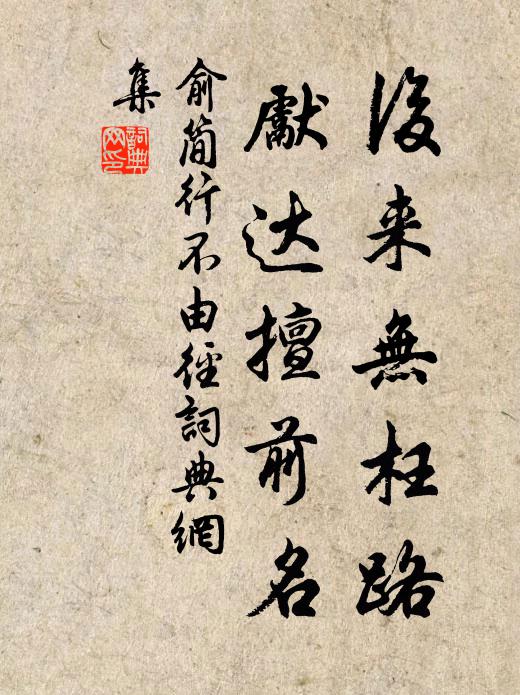 後来無枉路
獻达擅前名
俞簡行不由徑詞典網
集
詞典网印